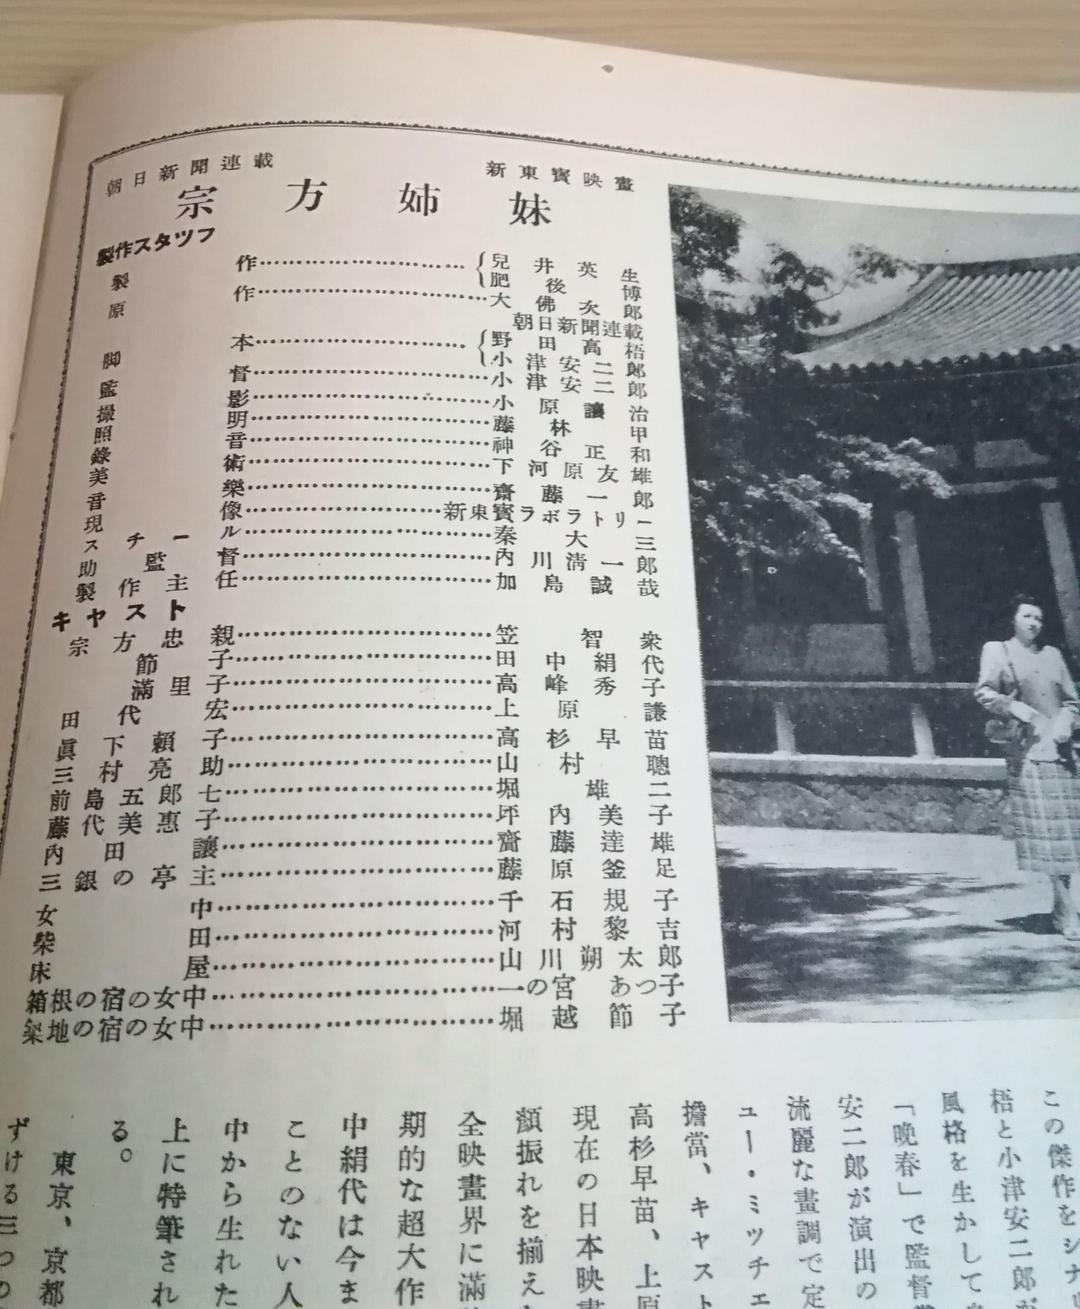 朝日新聞連載
新東寶映畫
宗方姉妹
製作スタツフ
製作……{兒井英生
肥後博
原作……大佛次郎
朝日新聞連載
脚本……{野田高梧
小津安二郎
監督……小津安二郎
撮影……小原讓治
照明……藤林甲
錄音……神谷正和
美術……下河原友雄
音樂……齋藤一郎
現像……新東寶ラボラトリー
スチール……秦大三
助監督……內川淸一郎
製作主任……加島誠哉
キヤスト
宗方忠親……笠智衆
節子……田中絹代
滿里子……高峰秀子
田代宏……上原謙
眞下賴子……高杉早苗
三村亮助……山村聰
前島五郎七……堀雄二
藤代美惠子……坪內美子
內田讓……齋藤達雄
三銀の亭主……藤原釜足
女中……千石規子
柴田……河村黎吉
床屋……山川朔太郎
箱根の宿の女中……一の宮あつ子
築地の宿の女中……堀越節子
この傑作をシナリ
梧と小津安二郎が
風格を生かして
「晩春」で監督
安二郎が演出の
流麗な畫調で定
ュー・ミッチェ
擔當、キャスト
高杉早苗、上原
現在の日本映畫
顏振れを揃え
全映畫界に滿
期的な超大作
中絹代は今ま
ことのない人
中から生れた
上に特筆され
る。
東京、京都
ずける三つの